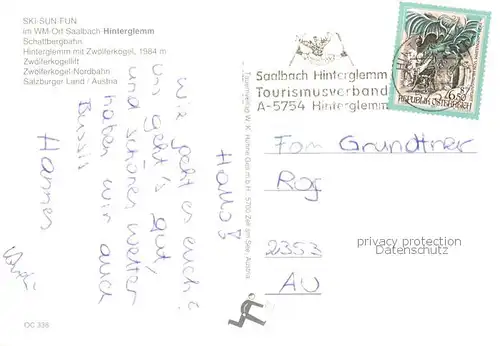 SKI-SUN-FUN
im WM-Ort Saalbach-Hinterglemm
Schattbergbahn
Hinterglemm mit Zwölferkogel, 1984 m
Zwölferkogellift
Zwölferkogel-Nordbahn
Salzburger Land / Austria
Hallo!
Wie geht es euch?
Uns geht's gut,
und schönes Wetter
haben wir auch
Bussis
Hannes
OC 336
Saalbach Hinterglemm
Tourismusverband
A-5754 Hinterglemm
REPUBLIK ÖSTERREICH
Fam Grundtner
2353
AU
privacy protection
Datenschutz